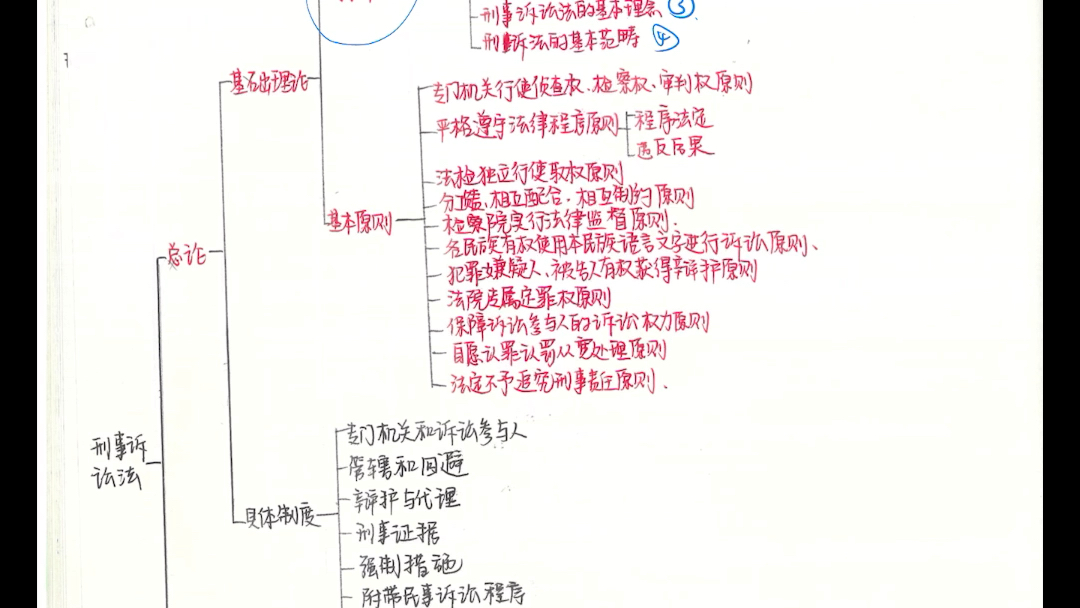 刑事诉讼法的基本理念 ③
刑事诉法的基本范畴 ④
基础理论
专门机关行使侦查权、检察权、审判权原则
严格遵守法律程序原则
程序法定
违反后果
法检独立行使职权原则
分工负责、相互配合、相互制约原则
基本原则
检察院实行法律监督原则.
各民族有权使用本民族语言文字进行诉讼原则、
总论
犯罪嫌疑人、被告人有权获得辩护原则
法院专属定罪权原则
保障诉讼参与人的诉讼权力原则
自愿认罪认罚从宽处理原则
法定不予追究刑事责任原则、
刑事诉
讼法
专门机关和诉讼参与人
管辖和回避
辩护与代理
具体制度
刑事证据
强制措施
附带民事诉讼程序